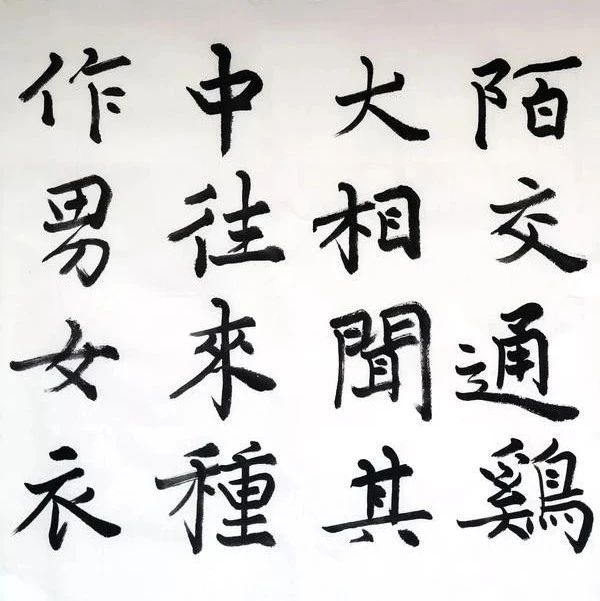 陌交通鷄
犬相聞其
中往來種
作男女衣